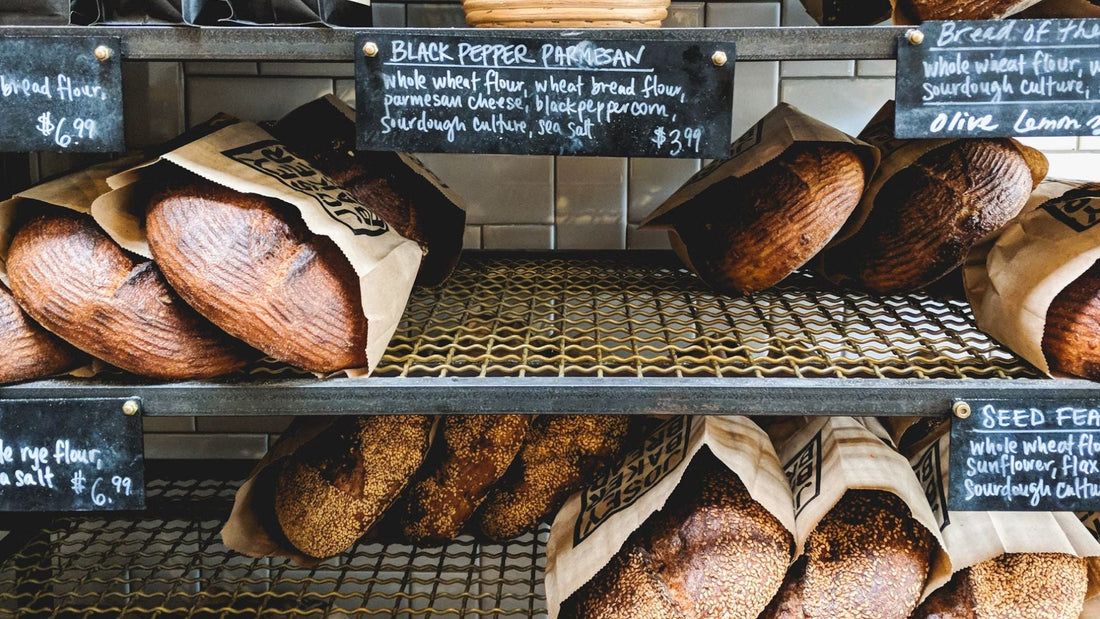 bread flour,
$6.99
BLACK PEPPER PARMESAN
whole wheat flour, wheat bread flour,
parmesan cheese, black peppercorn,
sourdough culture, sea salt
$3.99
Bread of the
whole wheat flour, w
sourdough culture,
Olive Lemon
JOSEY
BAKER
le rye flour,
a salt $6.99
JOSEY
BAKER
SEED FEA
whole wheat flo
sunflower, flax
sourdough cultu